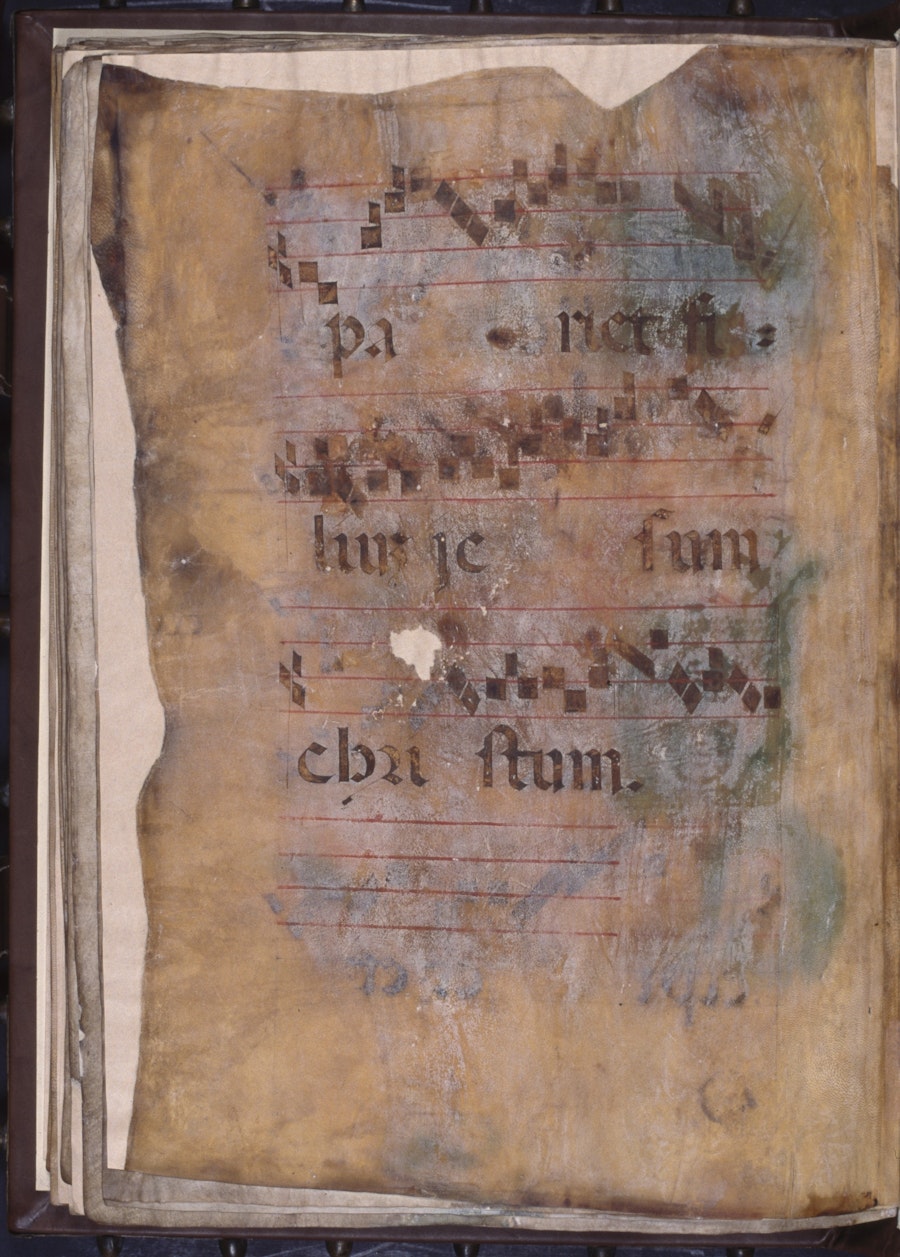 pa riet fi:
lium je sum
chri stum.